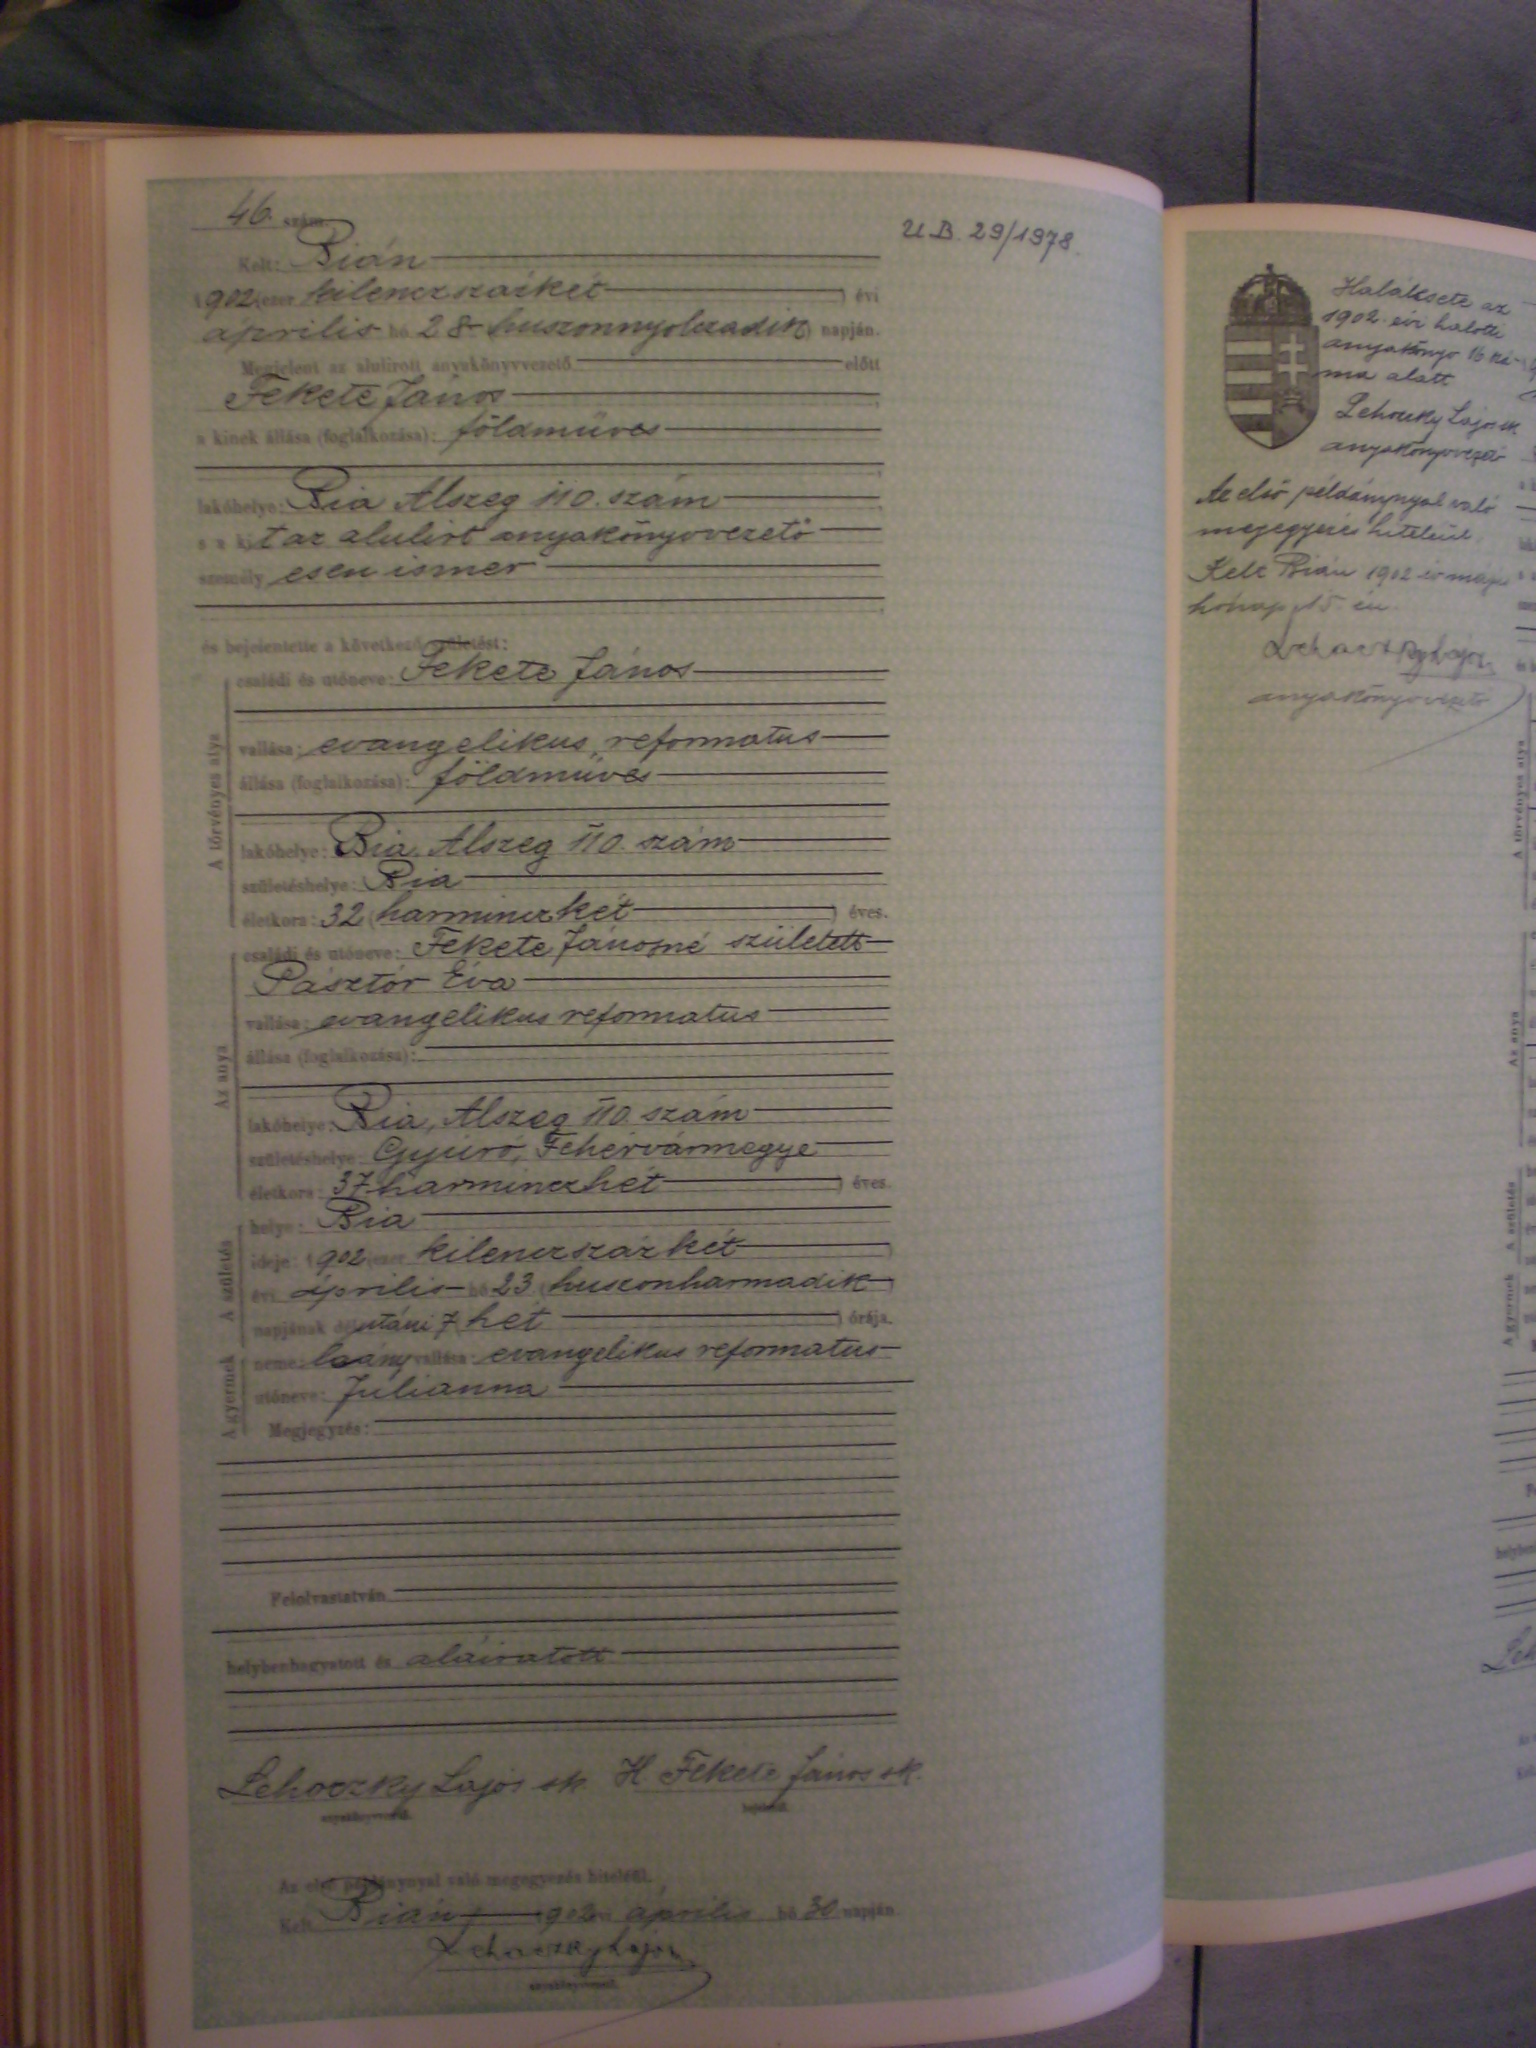 46. szám.
U B. 29/1978.
Kelt: Bián
1902 ezer kilenczszázkét ) évi
április hó 28 huszonnyolczadik ) napján.
Megjelent az alulírott anyakönyvvezető előtt
Fekete János
a kinek állása (foglalkozása): földmüves
lakóhelye: Bia Alszeg 110. szám
s a kit az alulirt anyakönyvvezető
személyesen ismer
és bejelentette a következő születést:
A törvényes atya
családi és utóneve: Fekete János
vallása: evangelikus reformatus
állása (foglalkozása): földmüves
lakóhelye: Bia, Alszeg 110. szám
születéshelye: Bia
életkora: 32 (harminczkét ) éves.
Az anya
családi és utóneve: Fekete Jánosné született
Pásztór Éva
vallása: evangelikus reformatus
állása (foglalkozása):
lakóhelye: Bia, Alszeg 110. szám
születéshelye: Gyúró, Fehérvármegye
életkora: 37 harminczhét ) éves.
A születés
helye: Bia
ideje: 1902 ezer kilenczszázkét
évi április hó 23 (huszonharmadik )
napjának délutáni 7 hét ) órája.
A gyermek
neme: leány vallása: evangelikus reformatus
utóneve: Julianna
Megjegyzés:
Felolvastatván
helybenhagyatott és aláiratott
Lehoczky Lajos sk. H. Fekete János sk.
anyakönyvvezető. bejelentő.
Az első példánynyal való megegyezés hiteléül.
Kelt Bián, 1902 évi április hó 30 napján
Lehoczky Lajos
anyakönyvvezető.
Halálesete az
1902. évi halotti
anyakönyv 16 szá-
ma alatt
Lehoczky Lajos sk.
anyakönyvvezető
Az első példánynyal való
megegyezés hiteléül.
Kelt Bián 1902 év május
hónap 15. én
Lehoczky Lajos
anyakönyvvezető
A törvényes atya
Az anya
A születés
A gyermek